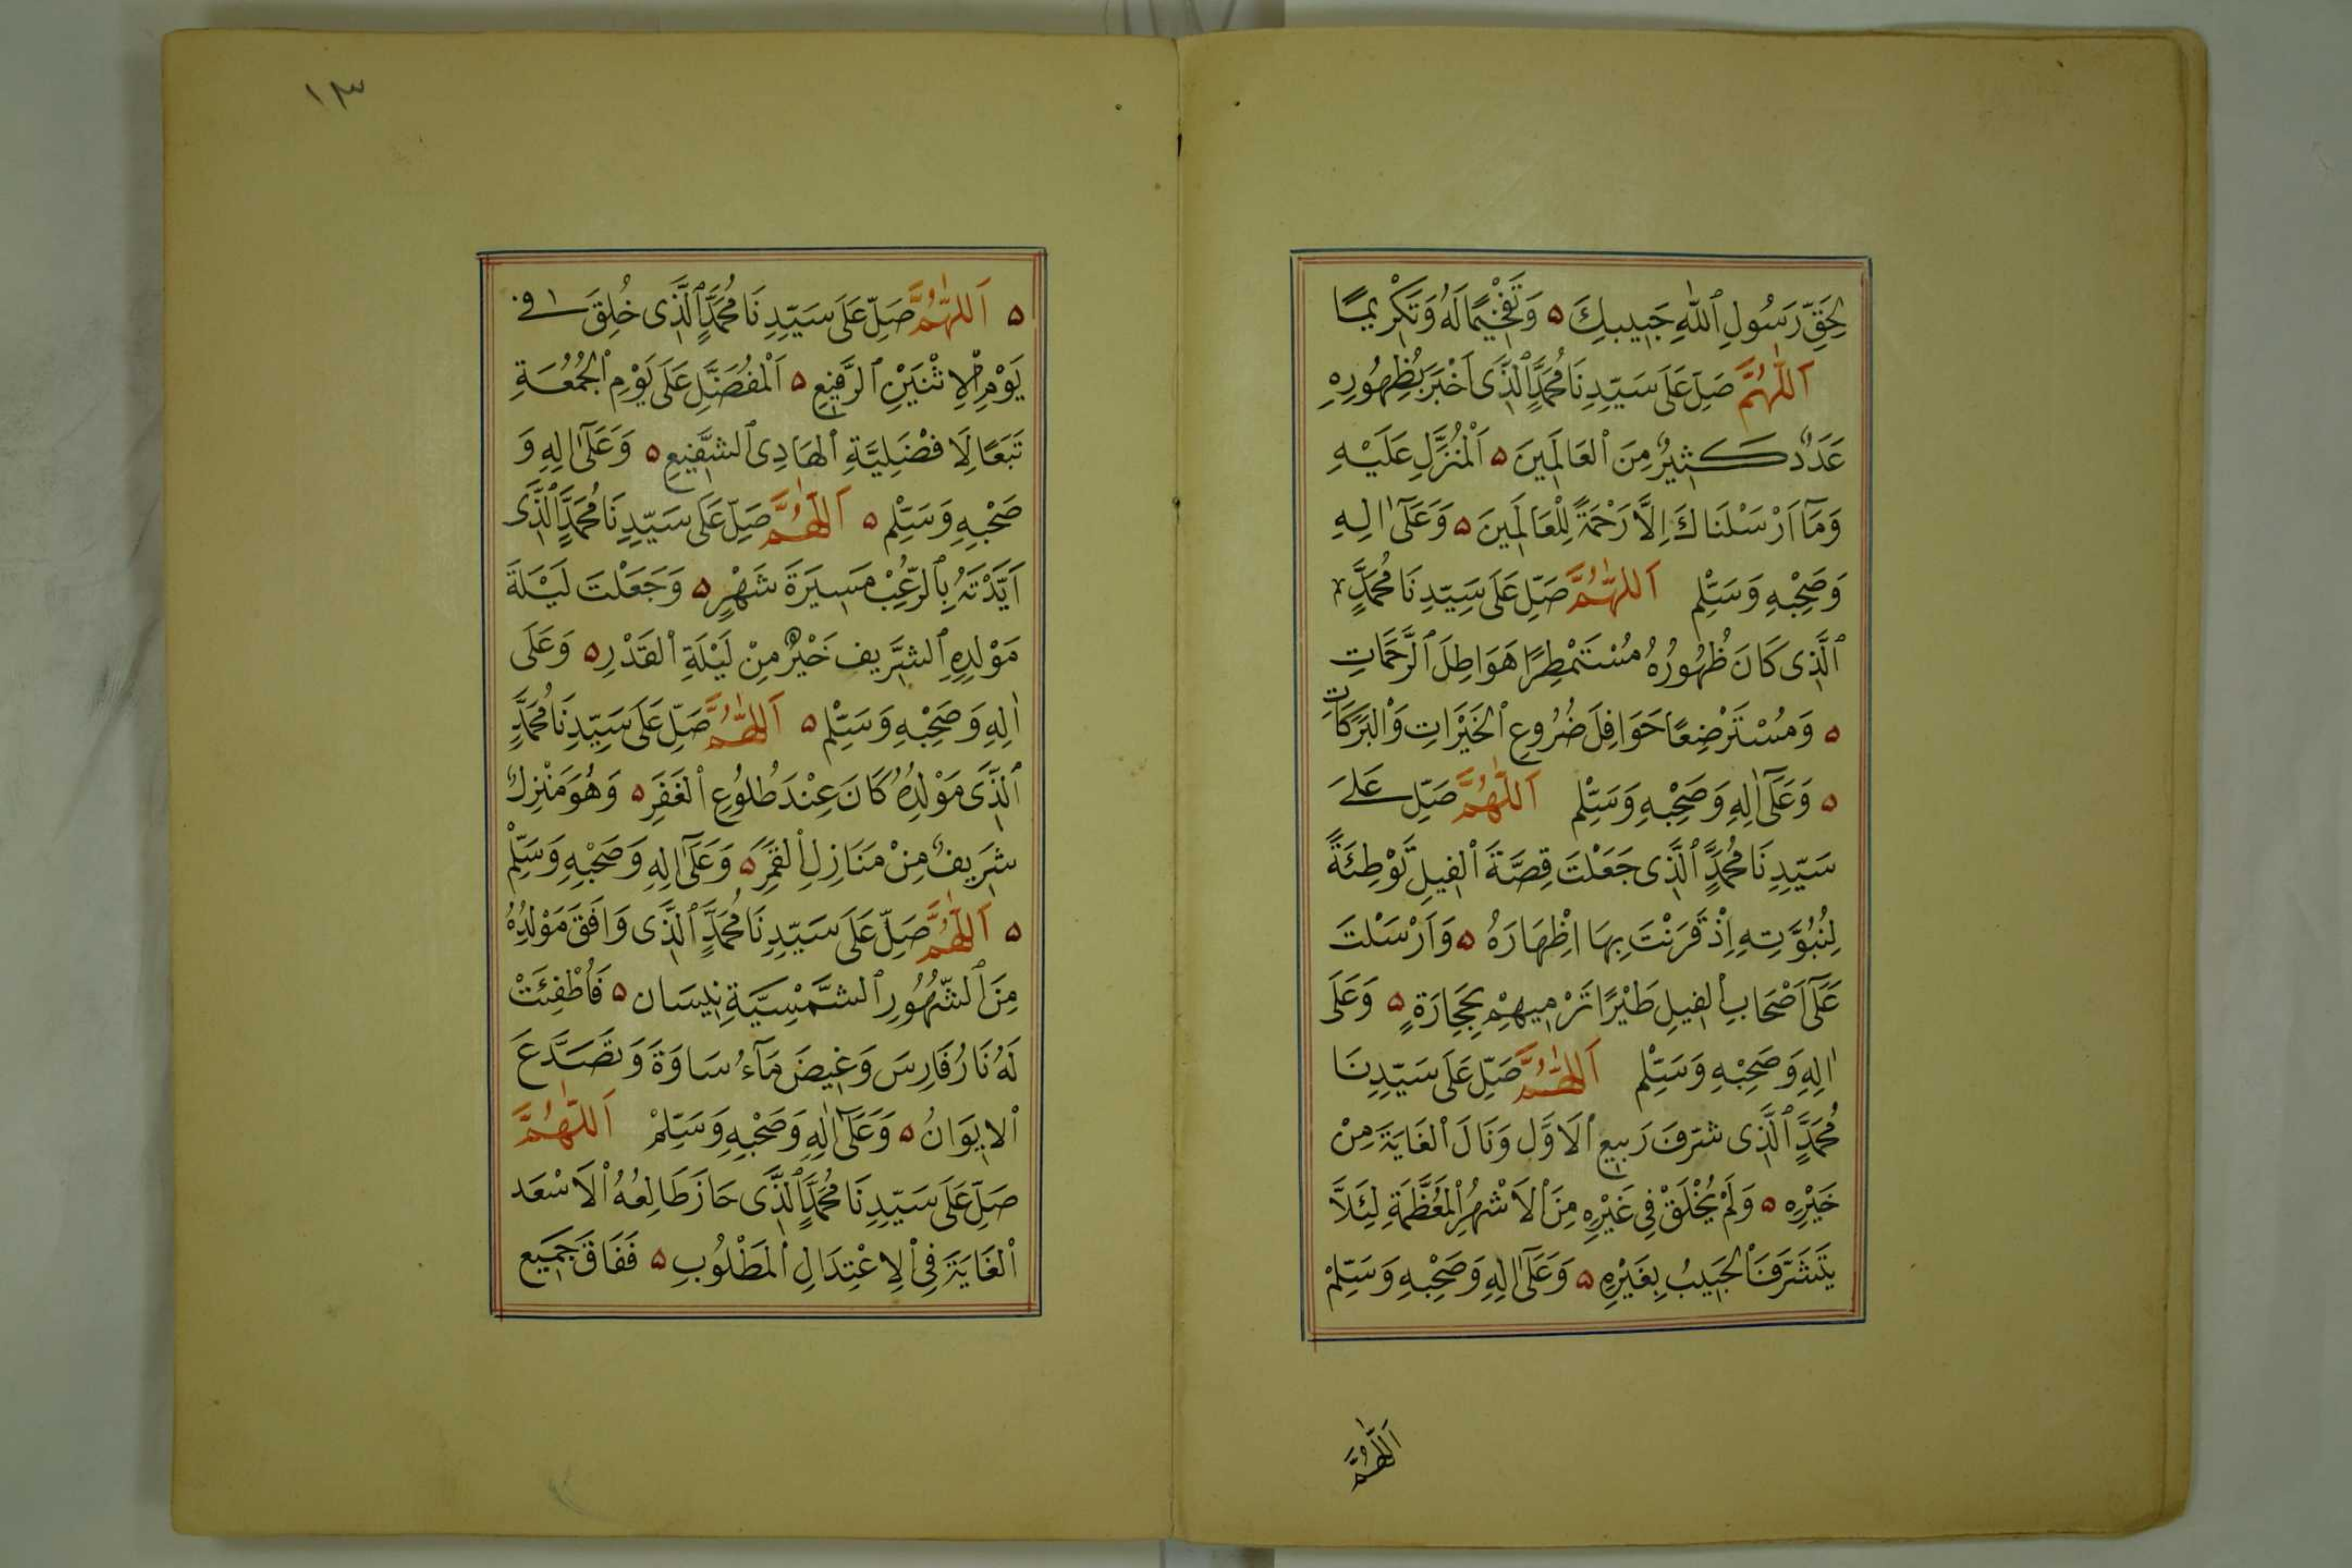 لِحَقِّ رَسُولِ ٱللّٰهِ حَبِيبِكَ ۵ وَتَفْخِيمًا لَهُ وَتَكْرِيمًا
اَللّٰهُمَّ صَلِّ عَلَى سَيِّدِنَا مُحَمَّدٍ ٱلَّذِى اَخْبَرَ بِظُهُورِهِ
عَدَدٌ كَثِيرٌ مِنَ ٱلعَالَمِينَ ۵ اَلْمُنَزَّلِ عَلَيْهِ
وَمَآ اَرْسَلْنَاكَ اِلَّا رَحْمَةً لِلْعَالَمِينَ ۵ وَعَلَىٰٓ اٰلِهِ
وَصَحْبِهِ وَسَلِّمْ اَللّٰهُمَّ صَلِّ عَلَى سَيِّدِنَا مُحَمَّدٍ
ٱلَّذِى كَانَ ظُهُورُهُ مُسْتَمْطِرًا هَوَاطِلَ ٱلرَّحَمَاتِ
۵ وَمُسْتَرْضِعًا حَوَافِلَ ضُرُوعِ ٱلخَيْرَاتِ وَٱلْبَرَكَاتِ
۵ وَعَلَىٰٓ اٰلِهِ وَصَحْبِهِ وَسَلِّمْ اَللّٰهُمَّ صَلِّ عَلَى
سَيِّدِنَا مُحَمَّدٍ ٱلَّذِى جَعَلْتَ قِصَّةَ ٱلْفِيلِ تَوْطِئَةً
لِنُبُوَّتِهِ اِذْ قَرَنْتَ بِهَا اِظْهَارَهُ ۵ وَاَرْسَلْتَ
عَلَىٰٓ اَصْحَابِ ٱلفِيلِ طَيْرًا تَرْمِيهِمْ بِحِجَارَةٍ ۵ وَعَلَى
اٰلِهِ وَصَحْبِهِ وَسَلِّمْ اَللّٰهُمَّ صَلِّ عَلَى سَيِّدِنَا
مُحَمَّدٍ ٱلَّذِى شَرَّفَ رَبِيعِ ٱلاَوَّل وَنَالَ ٱلغَايَةَ مِنْ
خَيْرِهِ ۵ وَلَمْ يُخْلَقْ فِى غَيْرِهِ مِنَ ٱلاَشْهُرِ ٱلْمُعَظَّمَةِ لِئَلَّا
يَتَشَرَّفَ ٱلحَبِيبُ بِغَيْرِهِ ۵ وَعَلَىٰٓ اٰلِهِ وَصَحْبِهِ وَسَلِّمْ
اَللّٰهُمَّ
١٣
۵ اَللّٰهُمَّ صَلِّ عَلَى سَيِّدِنَا مُحَمَّدٍ ٱلَّذِى خُلِقَ فِى
يَوْمِ ٱلاِثْنَيْنِ ٱلرَّفِيعِ ۵ اَلْمُفَضَّلِ عَلَى يَوْمِ ٱلجُمُعَةِ
تَبَعًا لِاَفضَلِيَّةِ ٱلهَادِى ٱلشَّفِيعِ ۵ وَعَلَىٰٓ اٰلِهِ وَ
صَحْبِهِ وَسَلِّمْ ۵ اَللّٰهُمَّ صَلِّ عَلَى سَيِّدِنَا مُحَمَّدٍ ٱلَّذِى
اَيَّدْتَهُ بِٱلرُّعْبْ مَسِيرَةَ شَهْرٍ ۵ وَجَعَلْتَ لَيْلَةَ
مَوْلِدِهِ ٱلشَّرِيف خَيْرٌ مِنْ لَيْلَةِ ٱلقَدْرِ ۵ وَعَلَى
اٰلِهِ وَصَحْبِهِ وَسَلِّمْ ۵ اَللّٰهُمَّ صَلِّ عَلَى سَيِّدِنَا مُحَمَّدٍ
ٱلَّذِى مَوْلِدُهُ كَانَ عِنْدَ طُلُوعِ ٱلْغَفَرِ ۵ وَهُوَ مَنْزِلٌ
شَرِيفٌ مِنْ مَنَازِلِ ٱلْقَمَرِ ۵ وَعَلَىٰٓ اٰلِهِ وَصَحْبِهِ وَسَلِّمْ
۵ اَللّٰهُمَّ صَلِّ عَلَى سَيِّدِنَا مُحَمَّدٍ ٱلَّذِى وَافَقَ مَوْلِدُهُ
مِنَ ٱلشُّهُورِ ٱلشَّمْسِيَّةِ نِيسَان ۵ فَاُطْفِئَتْ
لَهُ نَارُ فَارِسَ وَغِيضَ مَآءُ سَاوَةَ وَتَصَدَّعَ
ٱلاِيوَانُ ۵ وَعَلَىٰٓ اٰلِهِ وَصَحْبِهِ وَسَلِّمْ اَللّٰهُمَّ
صَلِّ عَلَى سَيِّدِنَا مُحَمَّدٍ ٱلَّذِى حَازَ طَالِعُهُ ٱلاَسْعَد
ٱلغَايَةَ فِى ٱلاِعْتِدَالِ ٱلمَطْلُوبِ ۵ فَفَاقَ جَمِيع